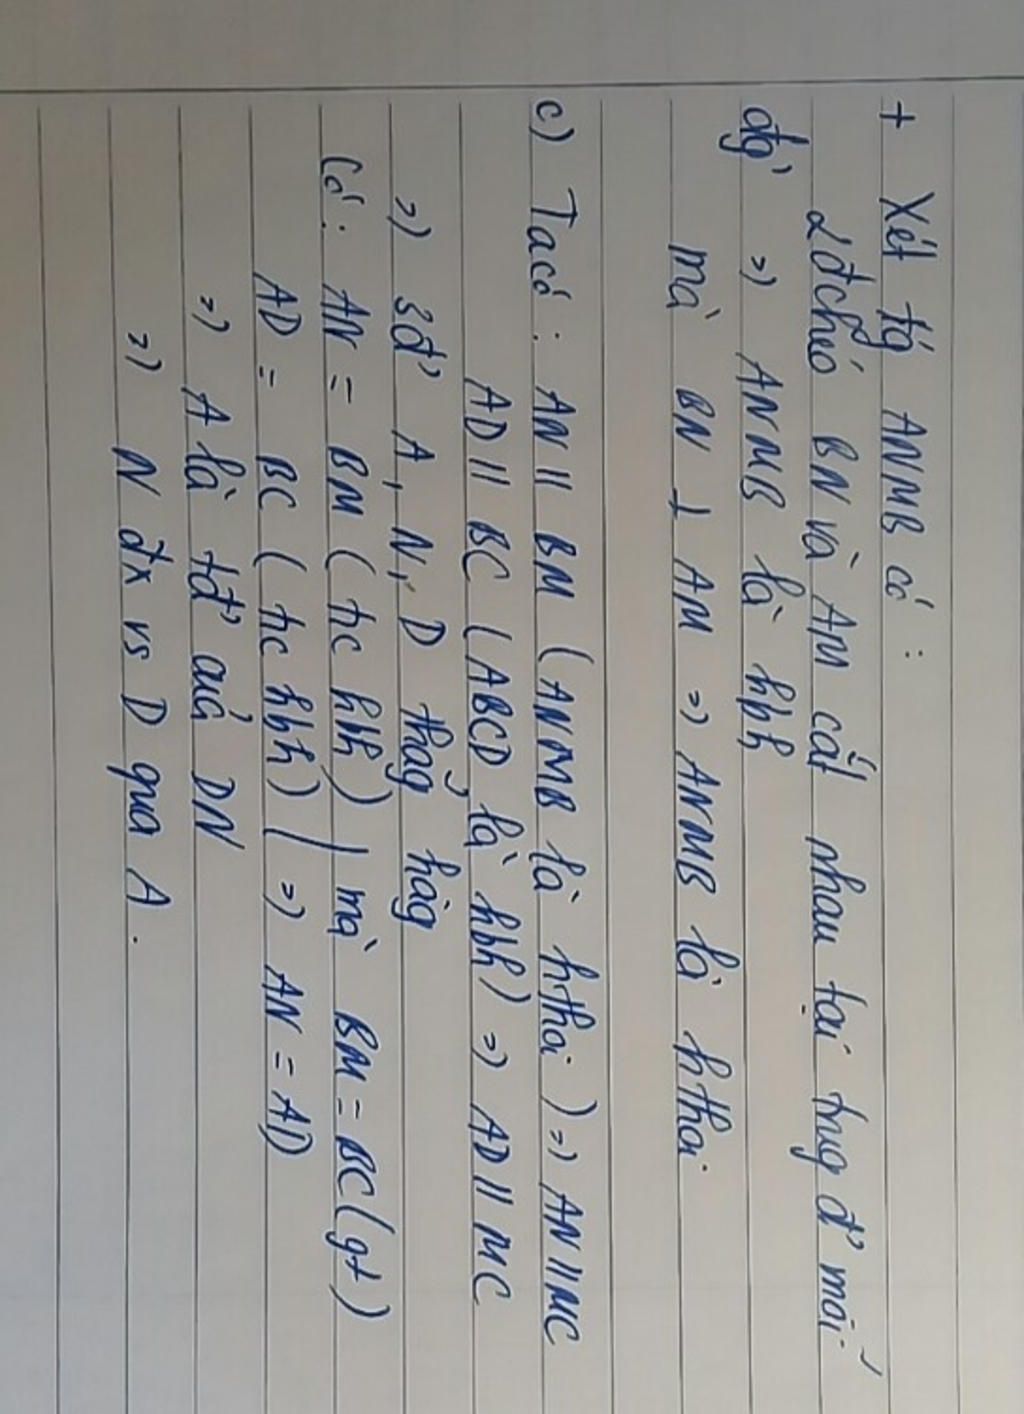 + Xét tg ANMB có :
2 đchéo BN và AM cắt nhau tại trug đ' mỗi
đg' => ANMB là hbh
mà BN ⊥ AM => ANMB là hthoi
c) Ta có : AN // BM (ANMB là hthoi) => AN // MC
AD // BC (ABCD là hbh) => AD // MC
=> 3đ' A, N, D thẳg hàg
Có : AN = BM ( tc hbh) | mà BM = BC (gt)
AD = BC ( tc hbh) | => AN = AD
=> A là tđ' của DN
=> N đx vs D qua A .